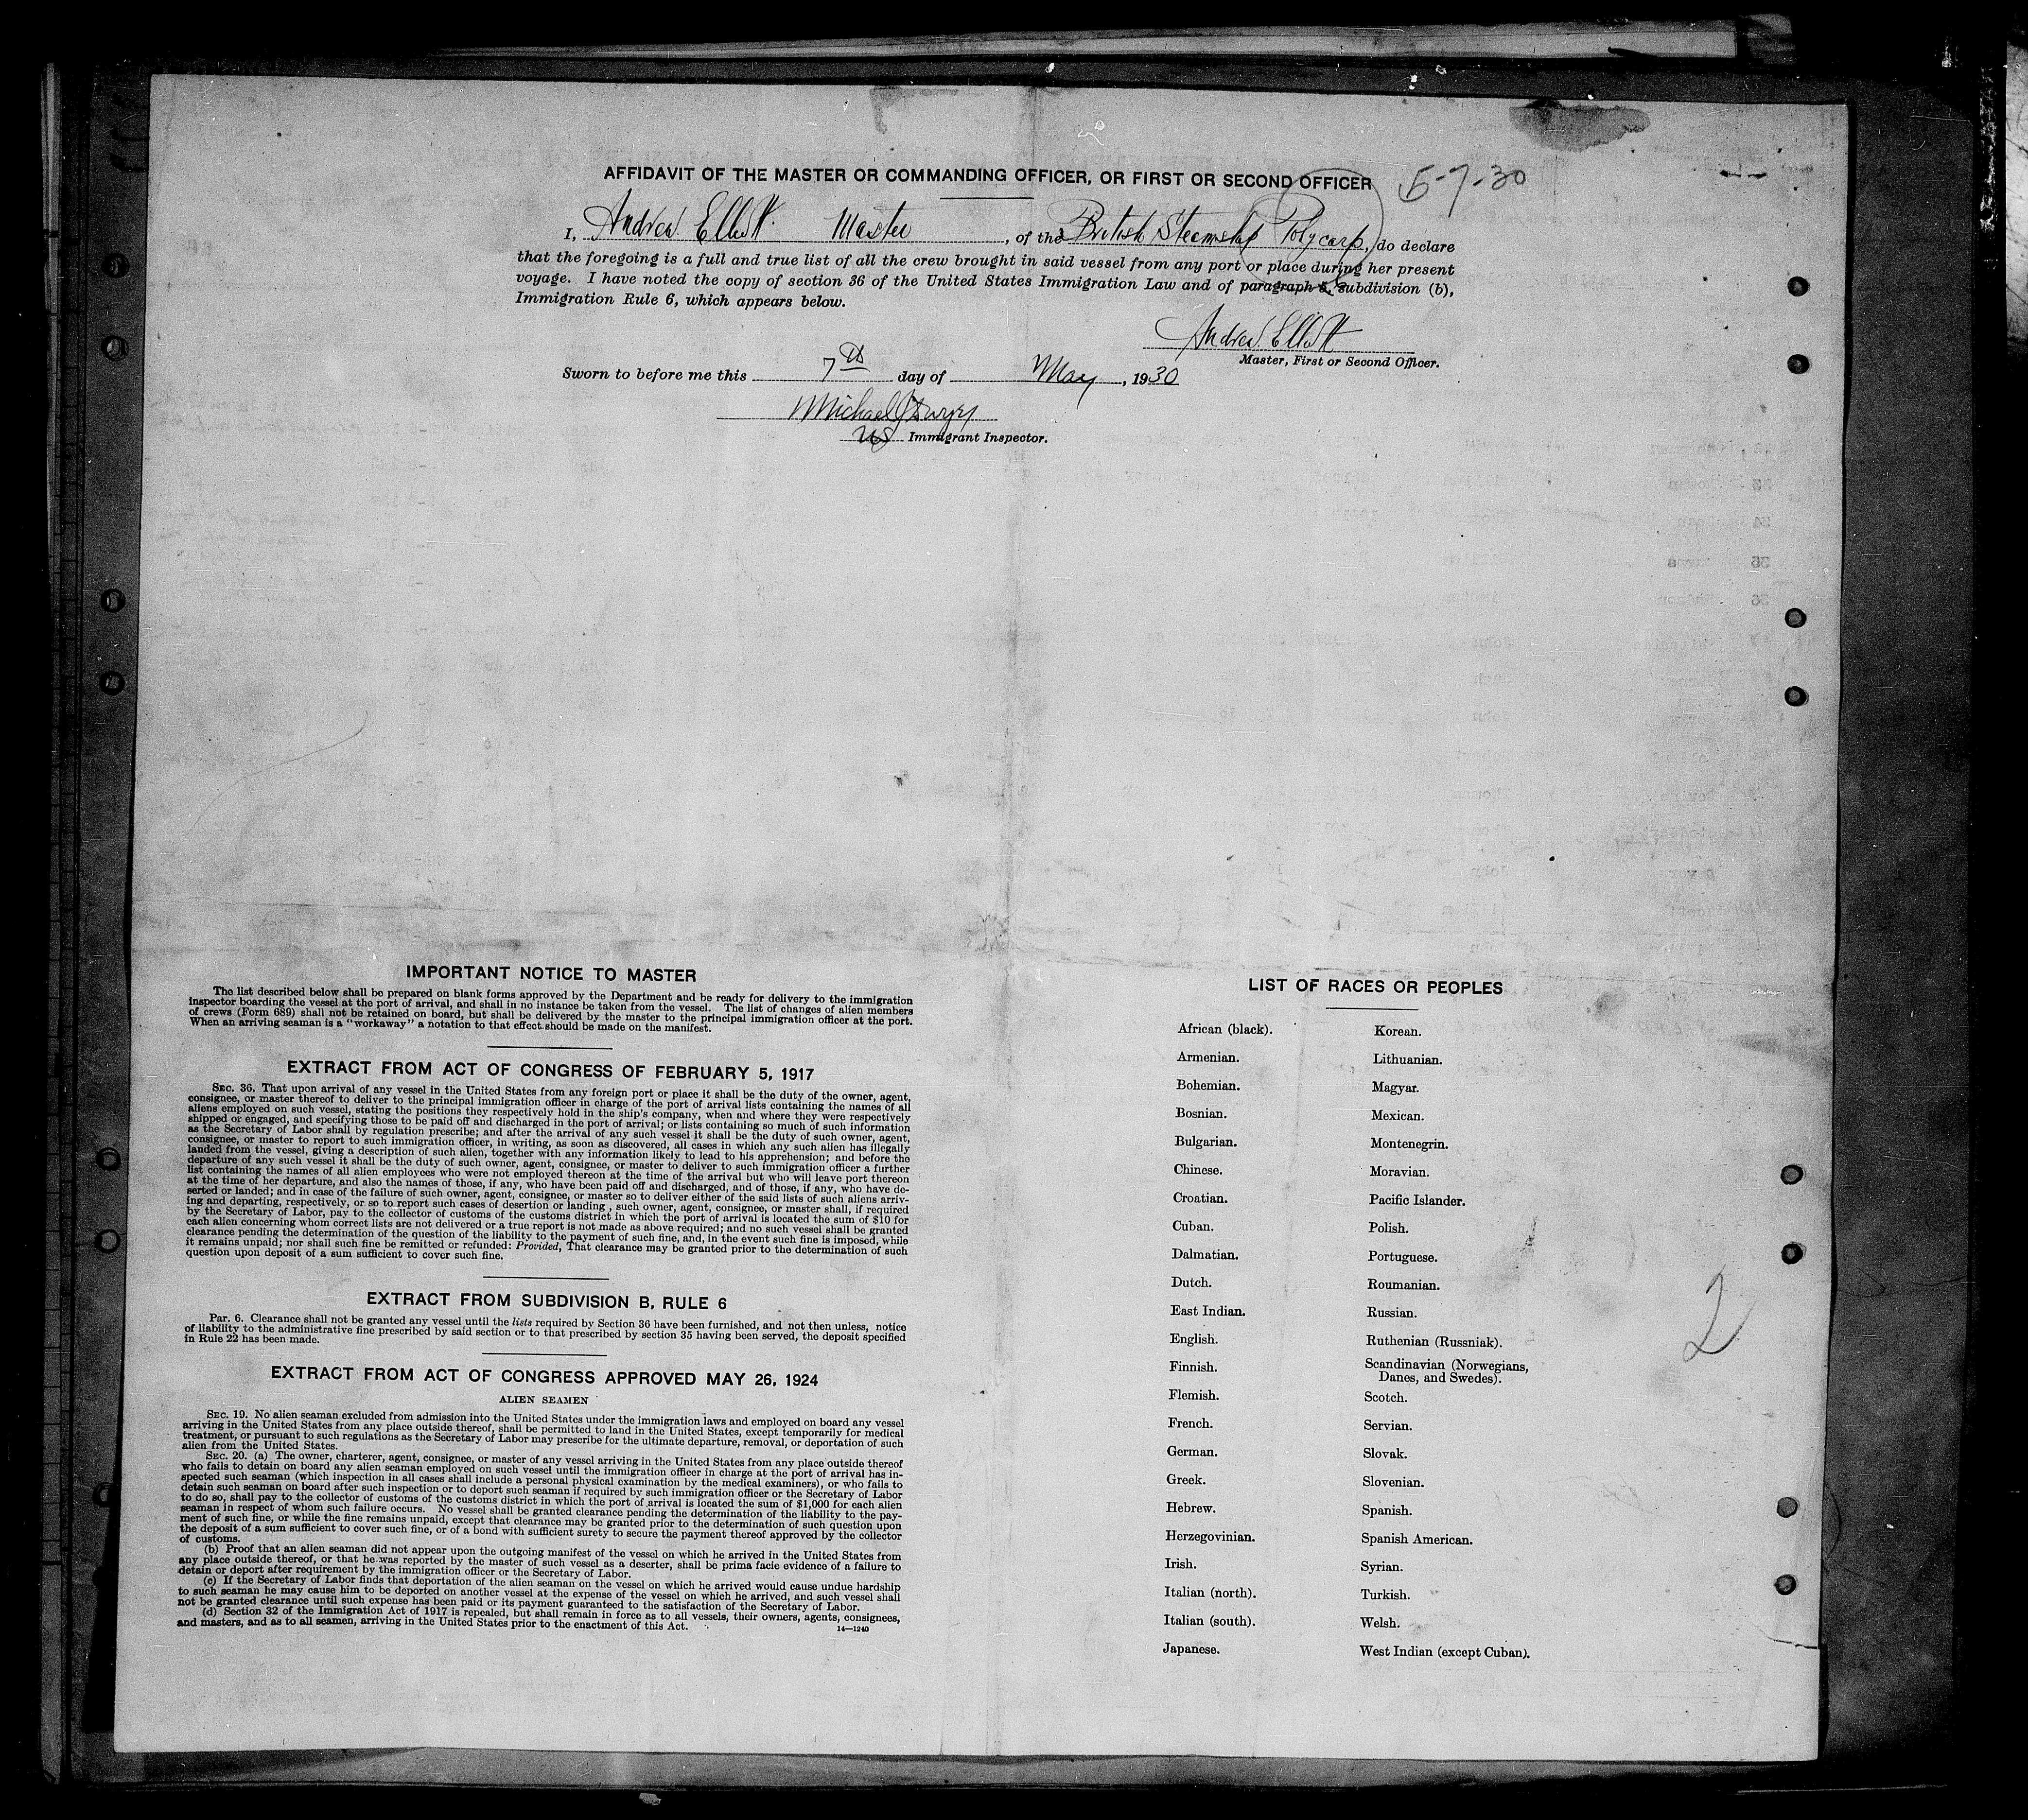 AFFIDAVIT OF THE MASTER OR COMMANDING OFFICER, OR FIRST OR SECOND OFFICER 5-7-30
I, Andrew Elliott Master, of the British Steamship Polycarp, do declare
that the foregoing is a full and true list of all the crew brought in said vessel from any port or place during her present
voyage. I have noted the copy of section 36 of the United States Immigration Law and of paragraph 5, subdivision (b),
Immigration Rule 6, which appears below.
Andrew Elliott
Master, First or Second Officer.
Sworn to before me this 7th day of May, 1930
Michael
US Immigrant Inspector.
IMPORTANT NOTICE TO MASTER
The list described below shall be prepared on blank forms approved by the Department and be ready for delivery to the immigration
inspector boarding the vessel at the port of arrival, and shall in no instance be taken from the vessel. The list of changes of alien members
of crews (Form 689) shall not be retained on board, but shall be delivered by the master to the principal immigration officer at the port.
When an arriving seaman is a "workaway" a notation to that effect should be made on the manifest.
EXTRACT FROM ACT OF CONGRESS OF FEBRUARY 5, 1917
SEC. 36. That upon arrival of any vessel in the United States from any foreign port or place it shall be the duty of the owner, agent,
consignee, or master thereof to deliver to the principal immigration officer in charge of the port of arrival lists containing the names of all
aliens employed on such vessel, stating the positions they respectively hold in the ship's company, when and where they were respectively
shipped or engaged, and specifying those to be paid off and discharged in the port of arrival; or lists containing so much of such information
as the Secretary of Labor shall by regulation prescribe; and after the arrival of any such vessel it shall be the duty of such owner, agent,
consignee, or master to report to such immigration officer, in writing, as soon as discovered, all cases in which any such alien has illegally
landed from the vessel, giving a description of such alien, together with any information likely to lead to his apprehension; and before the
departure of any such vessel it shall be the duty of such owner, agent, consignee, or master to deliver to such immigration officer a further
list containing the names of all alien employees who were not employed thereon at the time of the arrival but who will leave port thereon
at the time of her departure, and also the names of those, if any, who have been paid off and discharged, and of those, if any, who have de-
serted or landed; and in case of the failure of such owner, agent, consignee, or master so to deliver either of the said lists of such aliens arriv-
ing and departing, respectively, or so to report such cases of desertion or landing , such owner, agent, consignee, or master shall, if required
by the Secretary of Labor, pay to the collector of customs of the customs district in which the port of arrival is located the sum of $10 for
each alien concerning whom correct lists are not delivered or a true report is not made as above required; and no such vessel shall be granted
clearance pending the determination of the question of the liability to the payment of such fine, and, in the event such fine is imposed, while
it remains unpaid; nor shall such fine be remitted or refunded: Provided, That clearance may be granted prior to the determination of such
question upon deposit of a sum sufficient to cover such fine.
EXTRACT FROM SUBDIVISION B, RULE 6
Par. 6. Clearance shall not be granted any vessel until the lists required by Section 36 have been furnished, and not then unless, notice
of liability to the administrative fine prescribed by said section or to that prescribed by section 35 having been served, the deposit specified
in Rule 22 has been made.
EXTRACT FROM ACT OF CONGRESS APPROVED MAY 26, 1924
ALIEN SEAMEN
SEC. 19. No alien seaman excluded from admission into the United States under the immigration laws and employed on board any vessel
arriving in the United States from any place outside thereof, shall be permitted to land in the United States, except temporarily for medical
treatment, or pursuant to such regulations as the Secretary of Labor may prescribe for the ultimate departure, removal, or deportation of such
alien from the United States.
SEC. 20. (a) The owner, charterer, agent, consignee, or master of any vessel arriving in the United States from any place outside thereof
who fails to detain on board any alien seaman employed on such vessel until the immigration officer in charge at the port of arrival has in-
spected such seaman (which inspection in all cases shall include a personal physical examination by the medical examiners), or who fails to
detain such seaman on board after such inspection or to deport such seaman if required by such immigration officer or the Secretary of Labor
to do so, shall pay to the collector of customs of the customs district in which the port of arrival is located the sum of $1,000 for each alien
seaman in respect of whom such failure occurs. No vessel shall be granted clearance pending the determination of the liability to the pay-
ment of such fine, or while the fine remains unpaid, except that clearance may be granted prior to the determination of such question upon
the deposit of a sum sufficient to cover such fine, or of a bond with sufficient surety to secure the payment thereof approved by the collector
of customs.
(b) Proof that an alien seaman did not appear upon the outgoing manifest of the vessel on which he arrived in the United States from
any place outside thereof, or that he was reported by the master of such vessel as a deserter, shall be prima facie evidence of a failure to
detain or deport after requirement by the immigration officer or the Secretary of Labor.
(c) If the Secretary of Labor finds that deportation of the alien seaman on the vessel on which he arrived would cause undue hardship
to such seaman he may cause him to be deported on another vessel at the expense of the vessel on which he arrived, and such vessel shall
not be granted clearance until such expense has been paid or its payment guaranteed to the satisfaction of the Secretary of Labor.
(d) Section 32 of the Immigration Act of 1917 is repealed, but shall remain in force as to all vessels, their owners, agents, consignees,
and masters, and as to all seamen, arriving in the United States prior to the enactment of this Act.
14—1240
LIST OF RACES OR PEOPLES
African (black).
Armenian.
Bohemian.
Bosnian.
Bulgarian.
Chinese.
Croatian.
Cuban.
Dalmatian.
Dutch.
East Indian.
English.
Finnish.
Flemish.
French.
German.
Greek.
Hebrew.
Herzegovinian.
Irish.
Italian (north).
Italian (south).
Japanese.
Korean.
Lithuanian.
Magyar.
Mexican.
Montenegrin.
Moravian.
Pacific Islander.
Polish.
Portuguese.
Roumanian.
Russian.
Ruthenian (Russniak).
Scandinavian (Norwegians,
Danes, and Swedes).
Scotch.
Servian.
Slovak.
Slovenian.
Spanish.
Spanish American.
Syrian.
Turkish.
Welsh.
West Indian (except Cuban).
2